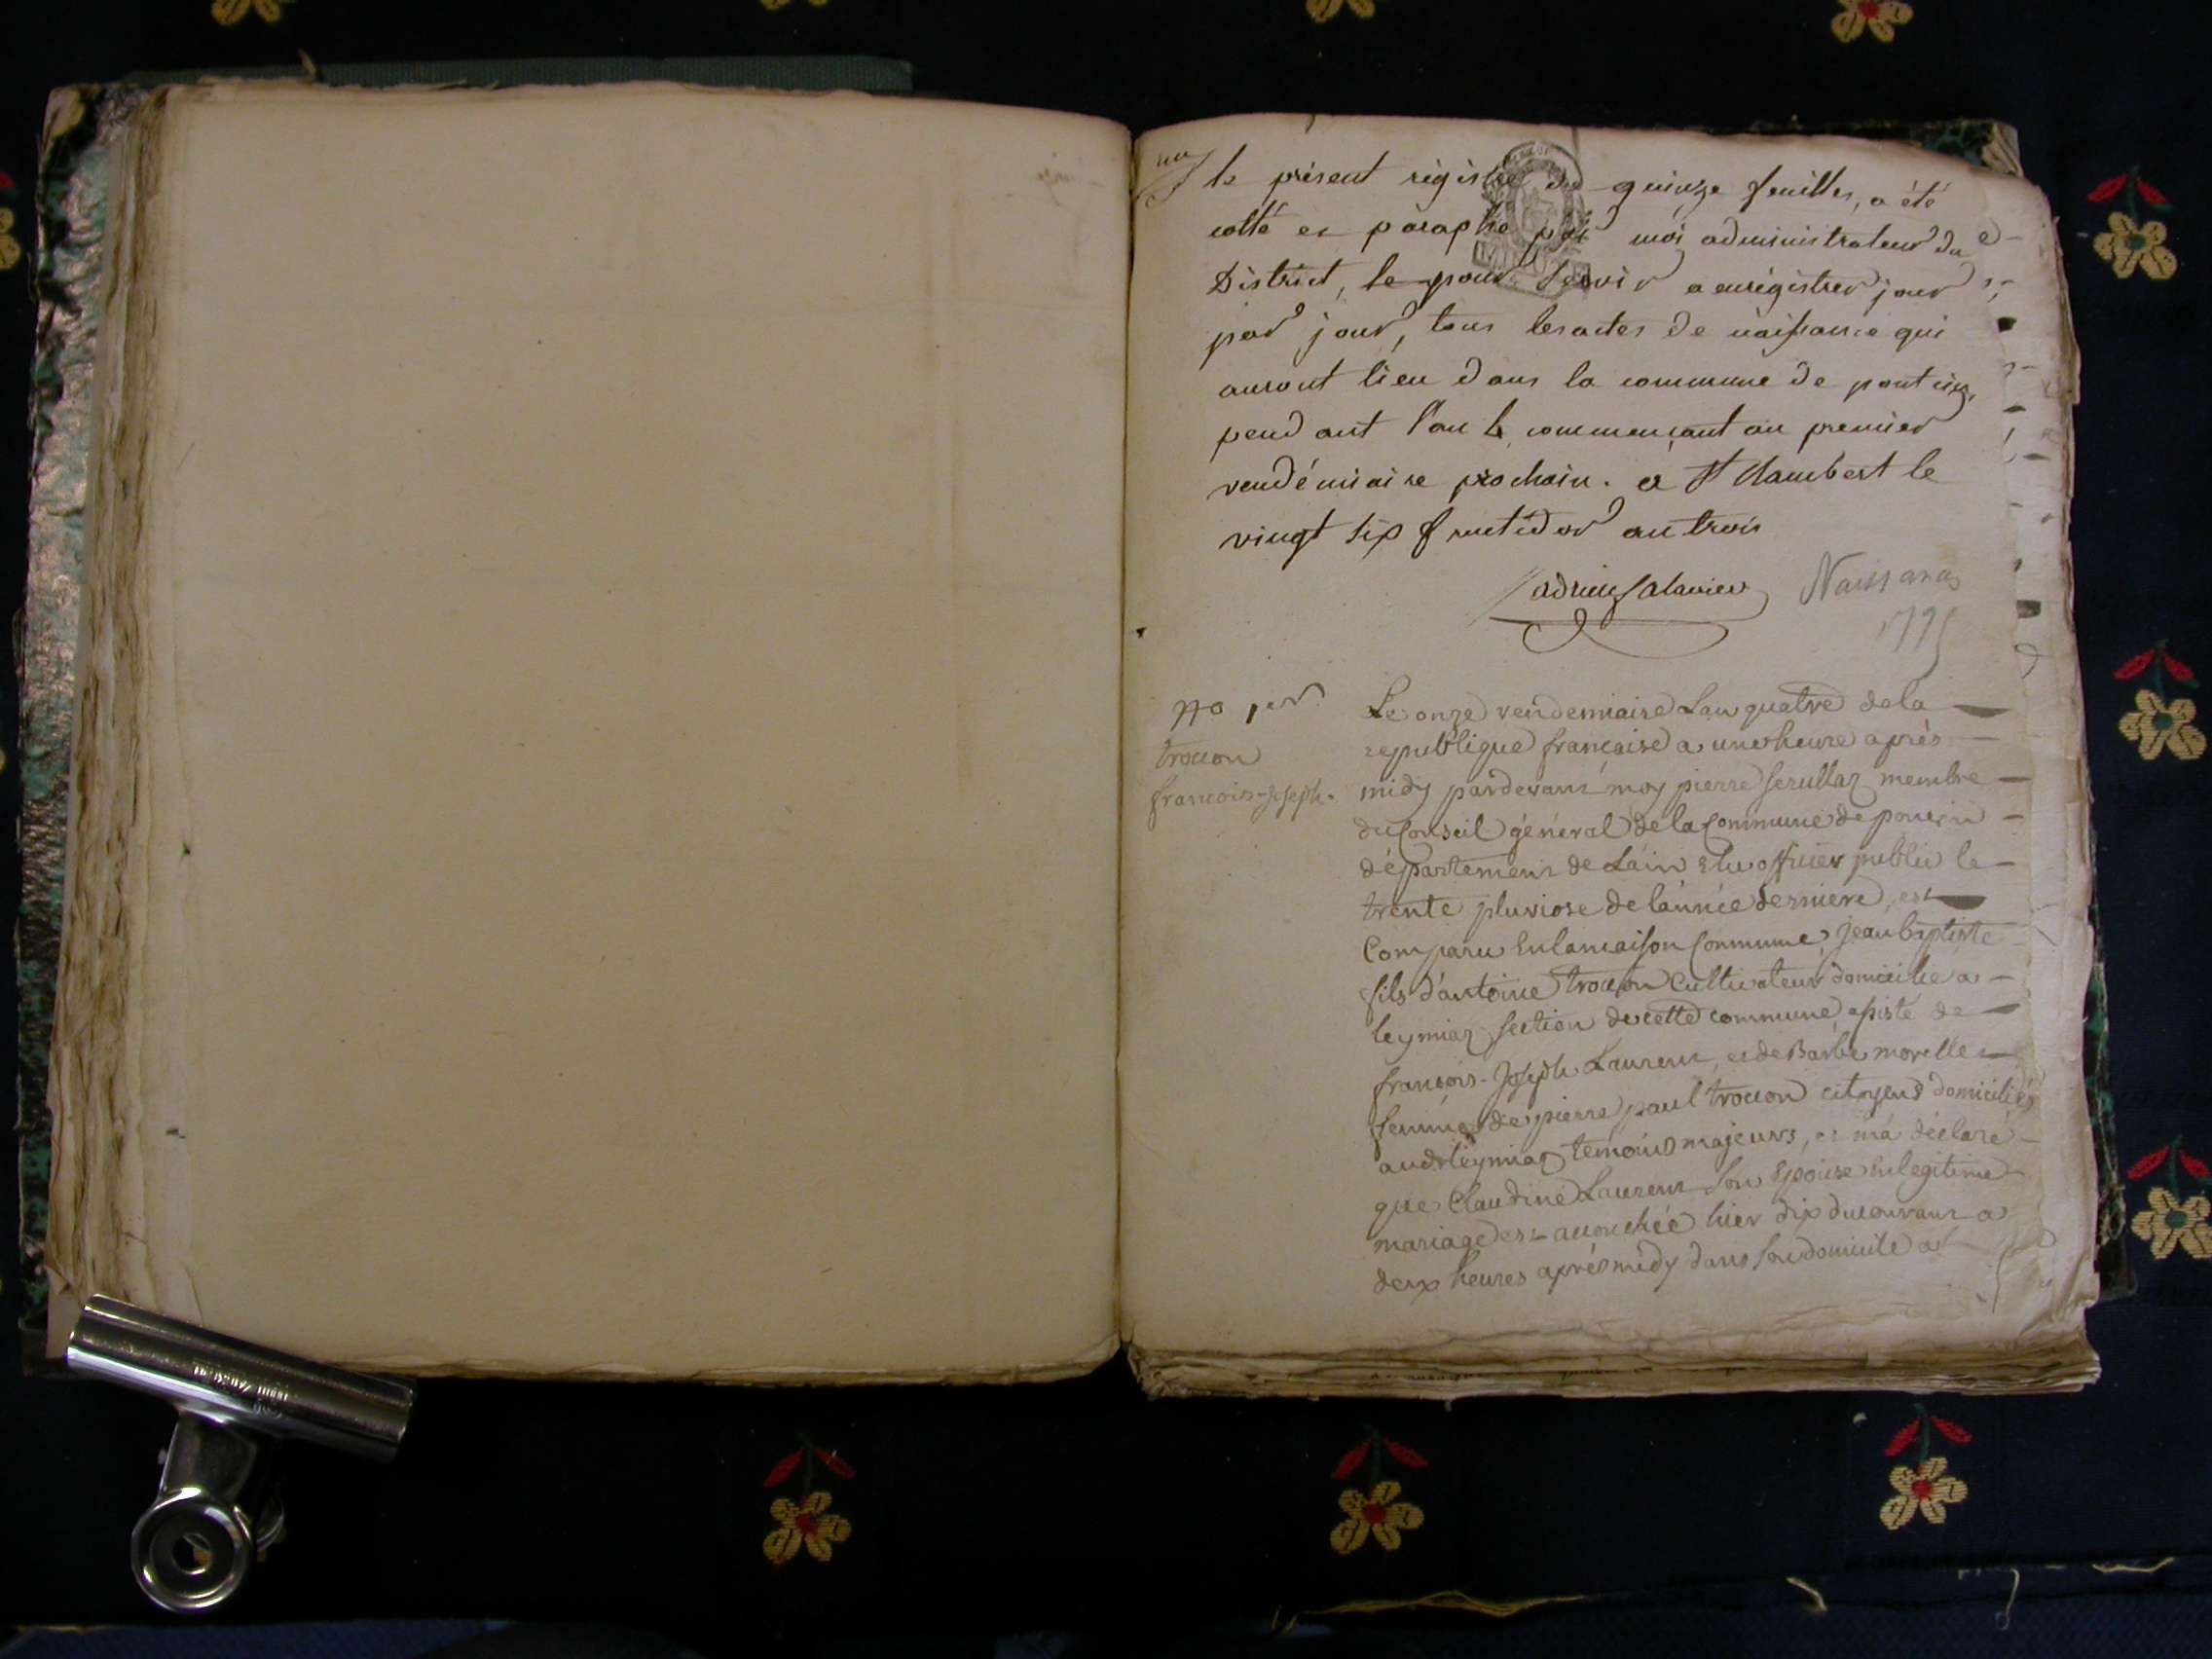 le présent régistre de quinze feuilles, a été
cotté et paraphé par moi administrateur du
District, le pour servir a enrégistrer jour
par jour, tous les actes de naissance qui
auront lieu dans la commune de
pendant l'an 4 commençant au premier
vendémiaire prochain. a St Rambert le
vingt six fructidor an trois
Naissances
1795
No 1er
trocon
francois-joseph.
Le onze vendemiaire Lan quatre de la
republique francaise a une heure après
midy pardevant moy pierre serullaz membre
du Conseil général de la Commune de poncin
département de Lain elu officier public le
trente pluviose de lánnée derniere, est
Comparu en la maison Commune, jean baptiste
fils dántoine trocon Cultivateur domicilié a
leymiaz section de cette commune, assisté de
francois-Joseph Laurent, et de Barbe morelle
femme de pierre paul trocon citoyens domiciliés
audt leymiaz temoins majeurs, et má déclaré
que Claudine Laurent son Epouse en legitime
mariage est accouchée hier dix du courant a
deux heures aprés midy dans son domicile a